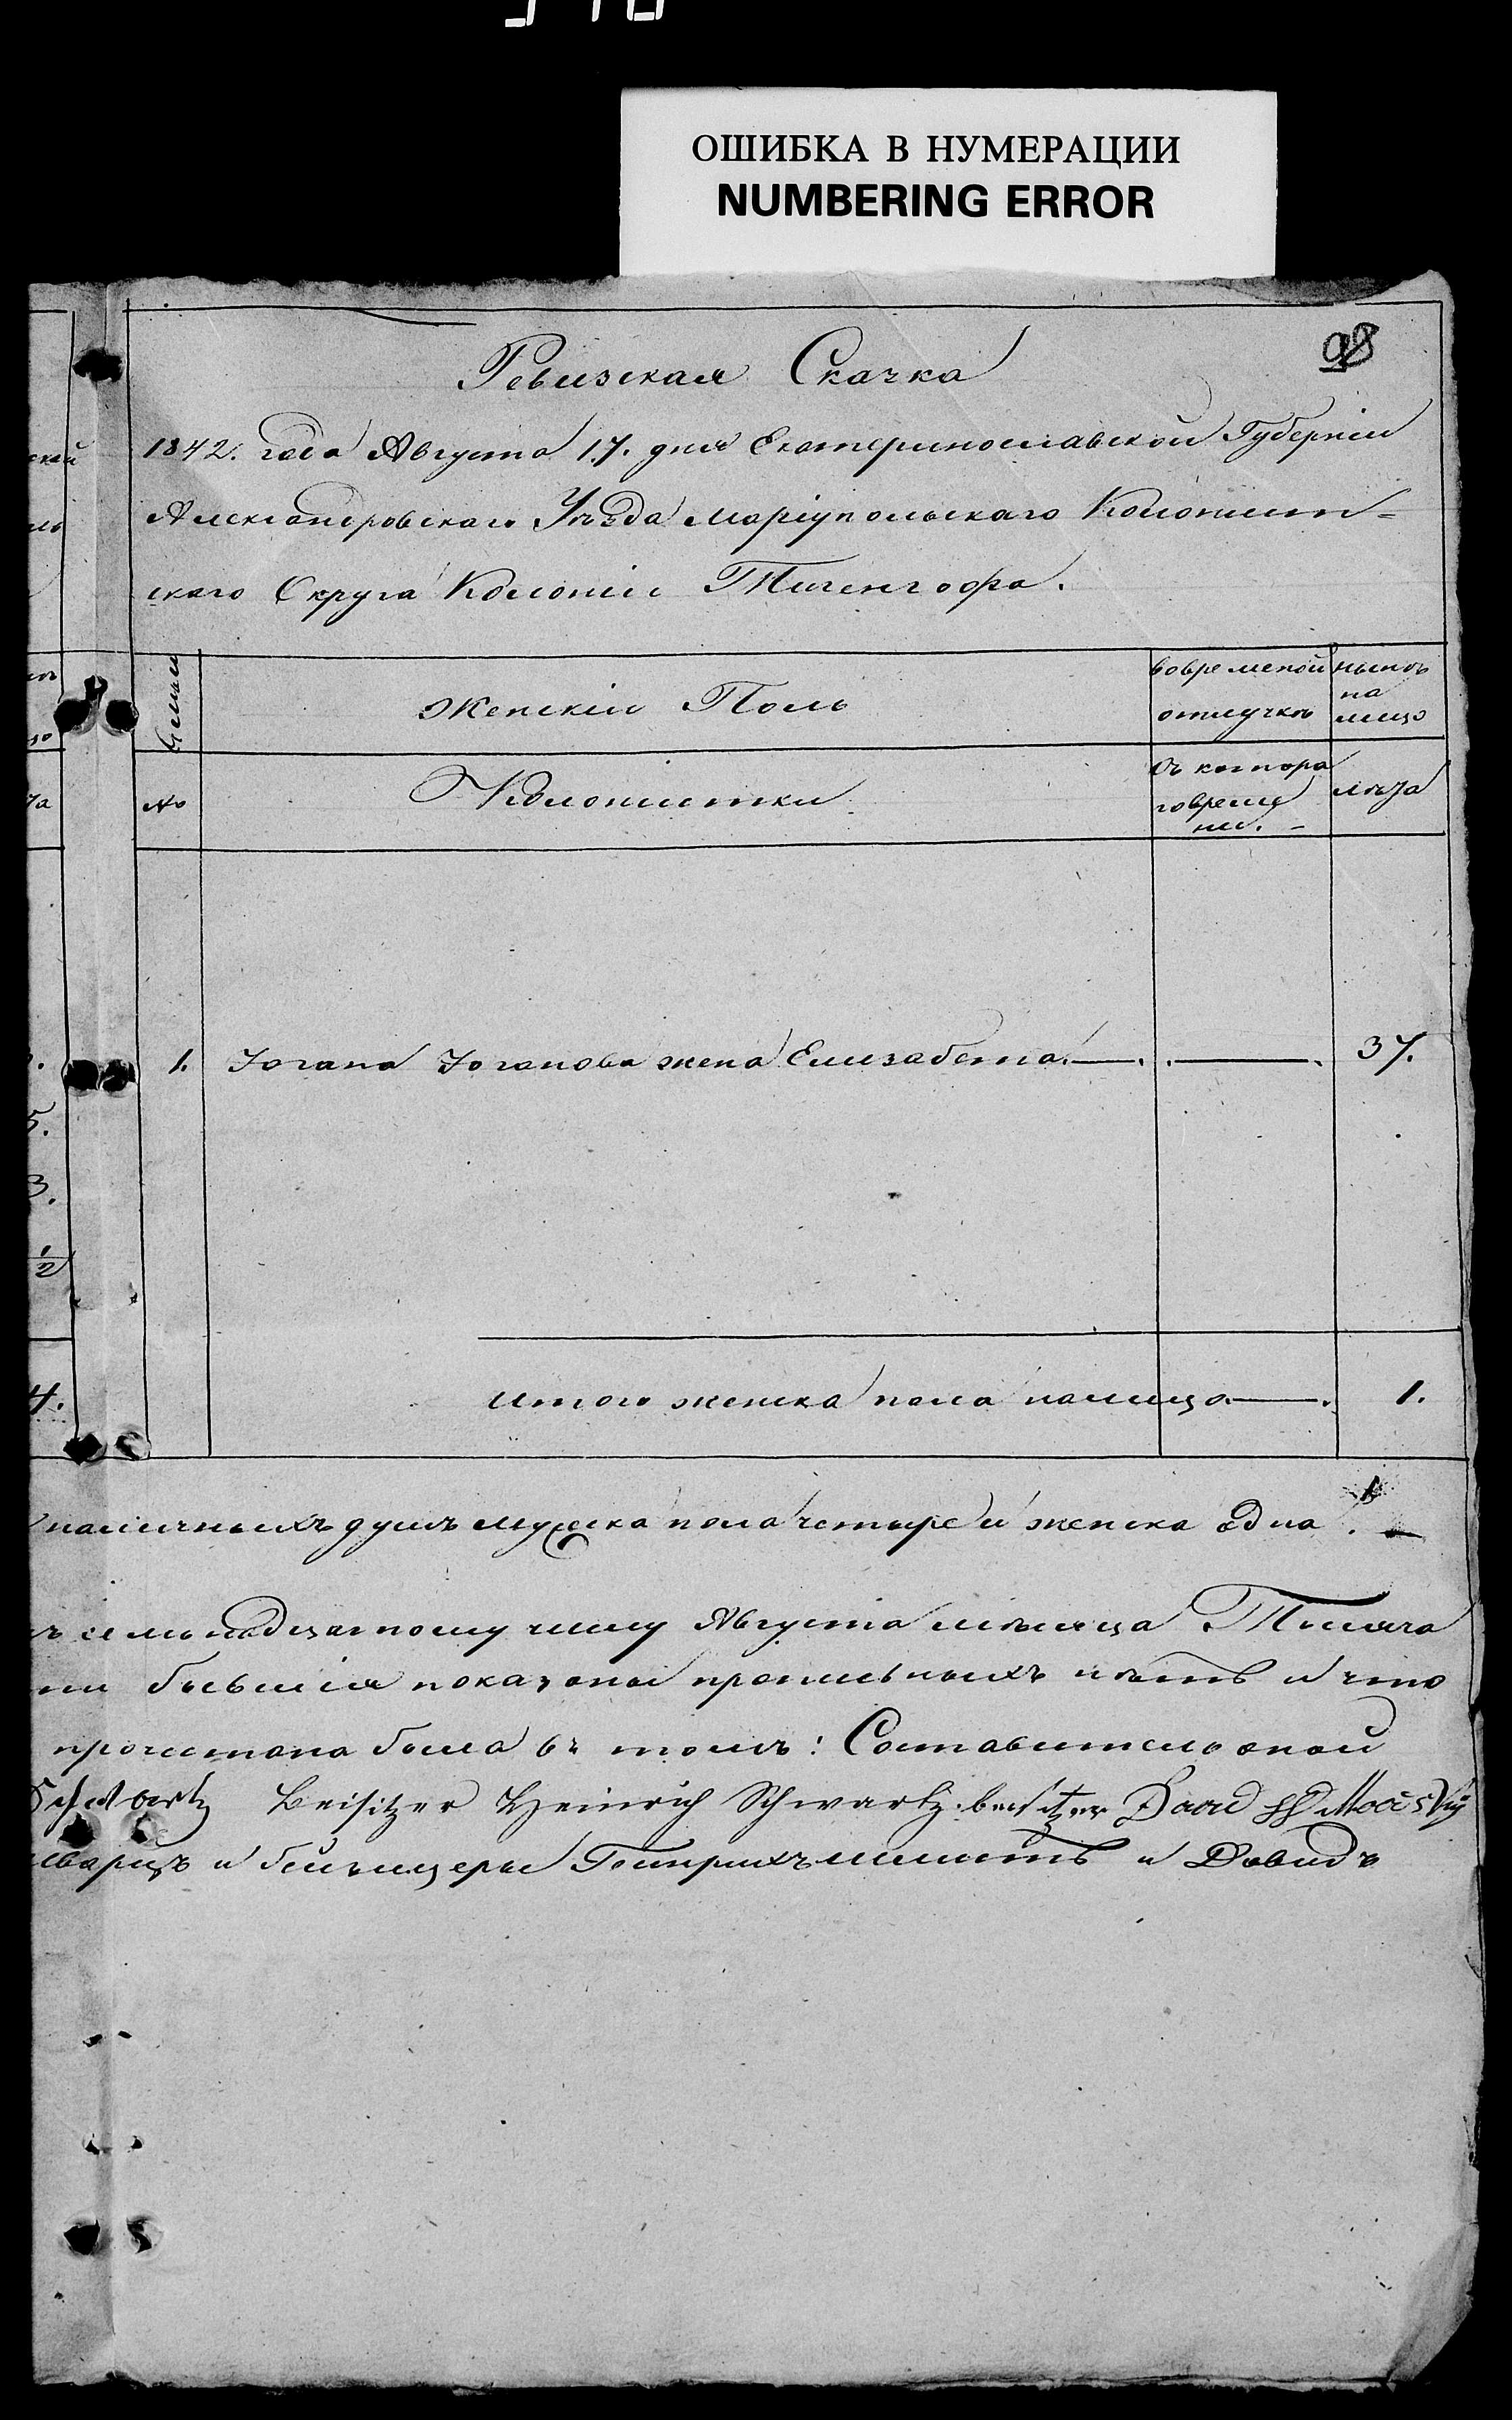 ОШИБКА В НУМЕРАЦИИ
NUMBERING ERROR
98
Ревизская Скачка
1842. года Августа 17. дня Екатеринославской Губерніи
Александровскаго Уѣзда Маріупольскаго Колонист=
скаго Округа Колоніи Тигенгофа.
Семьи
Женскій Полъ
вовременой
отлучкѣ
нынѣ
на
лицо
№
Колонистки
съ котора
говреме
ни. -
лѣта
1. Іогана Іоганова жена Елизабета.—. .—. 37.
Итого женска пола налицо.—. 1.
наличныхъ душъ мужска пола четыре и женска одна.
семьнадцатому числу Августа мѣсяца Тысяча
ни бывшія показаны прописныхъ нѣтъ и что
прочитана была въ томъ: Составитель оной
Schwartz Beisitzer Heinrich Schwartz. beisitzer David
Шварцъ и бейзицеры Генрихъ и Давидъ